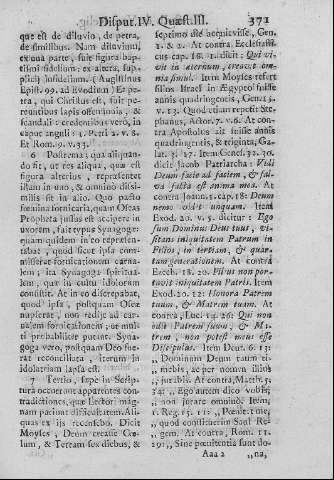 Disput. IV. Quæst. III. 371
que est de diluvio, de petra,
de similibus. Nam diluvium,
ex una parte, fuit figura bap-
tismi fidelium; ex altera, sup-
plicii infidelium. (Augustinus
Epist. 99. ad Evodium) Et pe-
tra, qui Christus est, fuit pe-
reuntibus lapis offensionis, &
scandali: credentibus verò, in
caput anguli: 1. Petri 2. v. 8.
Et Rom. 9. v. 33.
6 Postrema; quæ aliquan-
do fit, ut res aliqua, quæ est
figura alterius, repræsentet
illam in uno, & omnino dissi-
milis sit in alio. Quo pacto
fœmina fornicaria, quam Oseas
Propheta jussus est accipere in
uxorem, fuit typus Synagogæ:
quam quidem in eo repræsen-
tabat, quod sicut ipsa com-
miserat fornicationem carna-
lem; ita Synagoga spiritua-
lem, quæ in cultu idolorum
consistit. At in eo discrepabat,
quod ipsa, postquam Osee
nupserat, non rediit ad carna-
lem fornicationem, ut multi
probabiliter putant. Synago-
ga vero, postquam Deo fue-
rat reconciliata, iterum in
idolatriam lapsa est.
7 Tertio, sæpe in Scriptu-
ra occurrunt apparentes con-
tradictiones, quæ Lectori mag-
nam pariunt difficultatem. Ali-
quas ex iis recensebo. Dicit
Moyses, Deum creasse Cœ-
lum, & Terram sex diebus, &
septimo die acquievisse, Gen.
1. & 2. At contra. Ecclesiasti-
cus cap. 18. 1. dicit: Qui vi-
vit in æternum, creavit om-
nia simul. Item Moyses refert
filios Israel in Ægypto fuisse
annis quadringentis, Genes. 5.
v. 13. Quod etiam repetit Ste-
phanus, Actor. 7. v. 6. At con-
tra Apostolus ait fuisse annis
quadringentis, & triginta, Ga-
lat. 3. 17. Item Genes. 32. 30.
dicit Jacob Patriarcha: Vidi
Deum facie ad faciem, & sal-
va facta est anima mea. At
contra Joann. 1. cap. 18: Deum
nemo vidit unquam. Item
Exod. 20. v. 5. dicitur: Ego
sum Dominus Deus tuus, vi-
sitans iniquitatem Patrum in
Filios, in tertiam, & quar-
tam generationem. At contra
Ezech. 18. 20. Filius non por-
tavit iniquitatem Patris. Item
Exod. 20. 12: Honora Patrem
tuum, & Matrem tuam. At
contra, Luc. 14. 26: Qui non
odit Patrem suum, & Ma-
trem, non potest meus esse
Discipulus. Item Deut. 6. 13:
„ Dominum Deum tuum ti-
„ mebis, ac per nomen illius
„ jurabis. At contra, Matth. 5.
34: „ Ego autem dico vobis:
„ non jurare omnino. Item
1. Reg. 15. 11: „ Pœnitet me,
„ quod constituerim Saul Re-
„ gem. At contra, Rom. 11.
29: „ Sine pœnitentia sunt do-
Aaa 2 „ na,